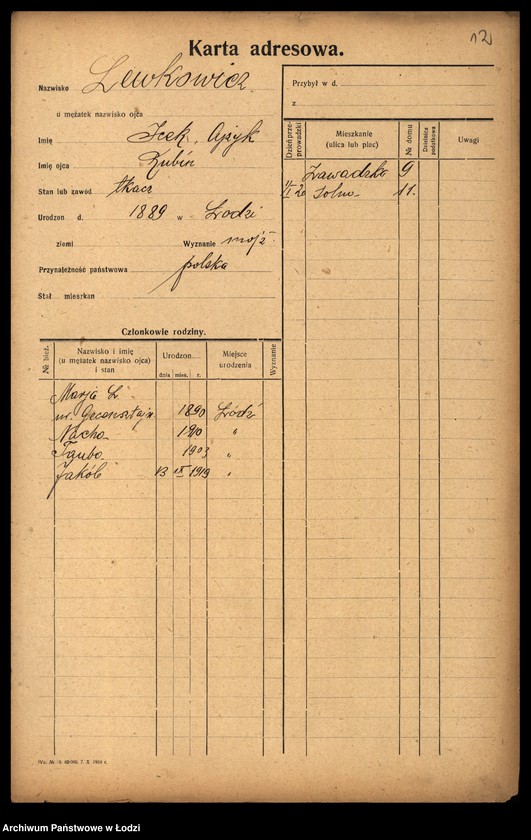 12
Karta adresowa.
Nazwisko Lewkowicz
u mężatek nazwisko ojca
Imię Icek, Ajzyk
Imię ojca
Stan lub zawód tkacz
Urodzon d. 1889 w Łodzi
ziemi Wyznanie mojż
Przynależność państwowa polska
Stał. mieszkan
Przybył w d.
z
Dzień przeprowadzki
Mieszkanie
(ulica lub plac)
№ domu
Dzielnica podatkowa
Uwagi
Zawadzka 9
20 Solna 11.
Członkowie rodziny.
№ bież.
Nazwisko i imię
(u mężatek nazwisko ojca)
i stan
Urodzon....
dnia mies. r.
Miejsce
urodzenia
Wyznanie
Marja L.
ur. 1890 Łódź
Nacha 1910 "
Tauba 1903 "
Jakób 13 IX 1919 "
7. X. 1918 r.
Archiwum Państwowe w Łodzi